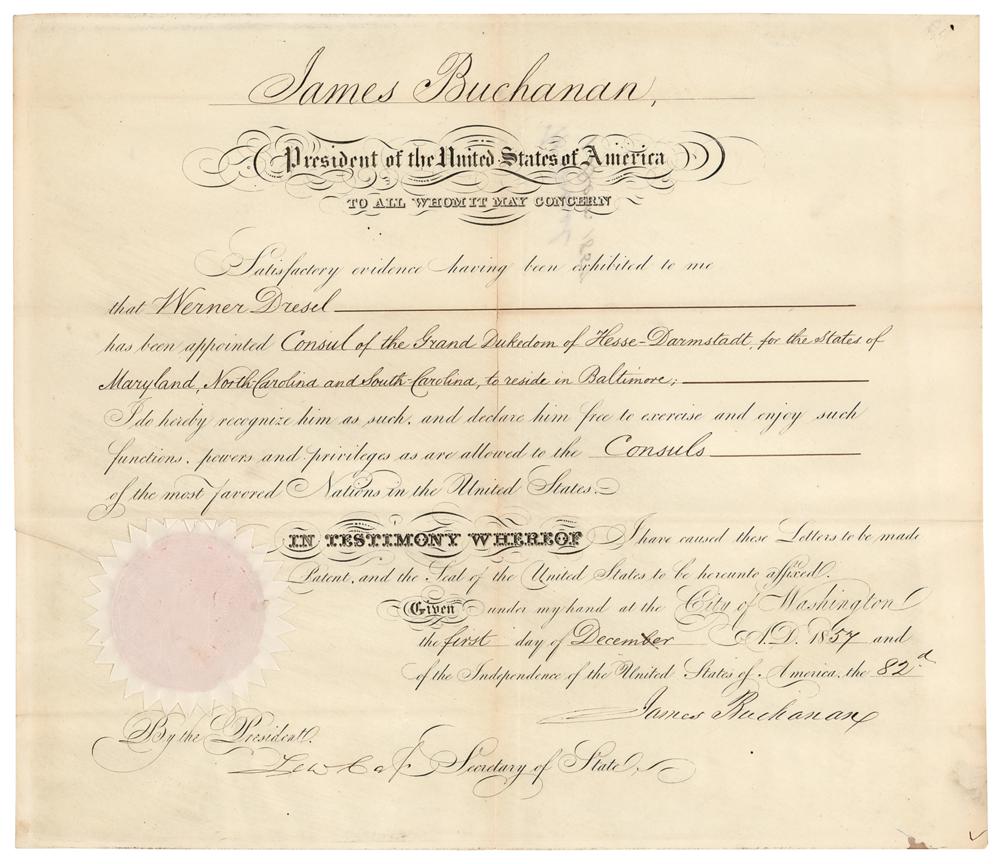 James Buchanan,
President of the United States of America
TO ALL WHOM IT MAY CONCERN
Satisfactory evidence having been exhibited to me
that Werner Dresel
has been appointed Consul of the Grand Dukedom of Hesse-Darmstadt, for the States of
Maryland, North-Carolina and South-Carolina, to reside in Baltimore;
I do hereby recognize him as such, and declare him free to exercise and enjoy such
functions, powers and privileges as are allowed to the Consuls
of the most favored Nations in the United States.
IN TESTIMONY WHEREOF I have caused these Letters to be made
Patent, and the Seal of the United States to be hereunto affixed.
Given under my hand at the City of Washington
the first day of December A.D. 1857 and
of the Independence of the United States of America, the 82d
James Buchanan
By the President.
Lew Cass Secretary of State.